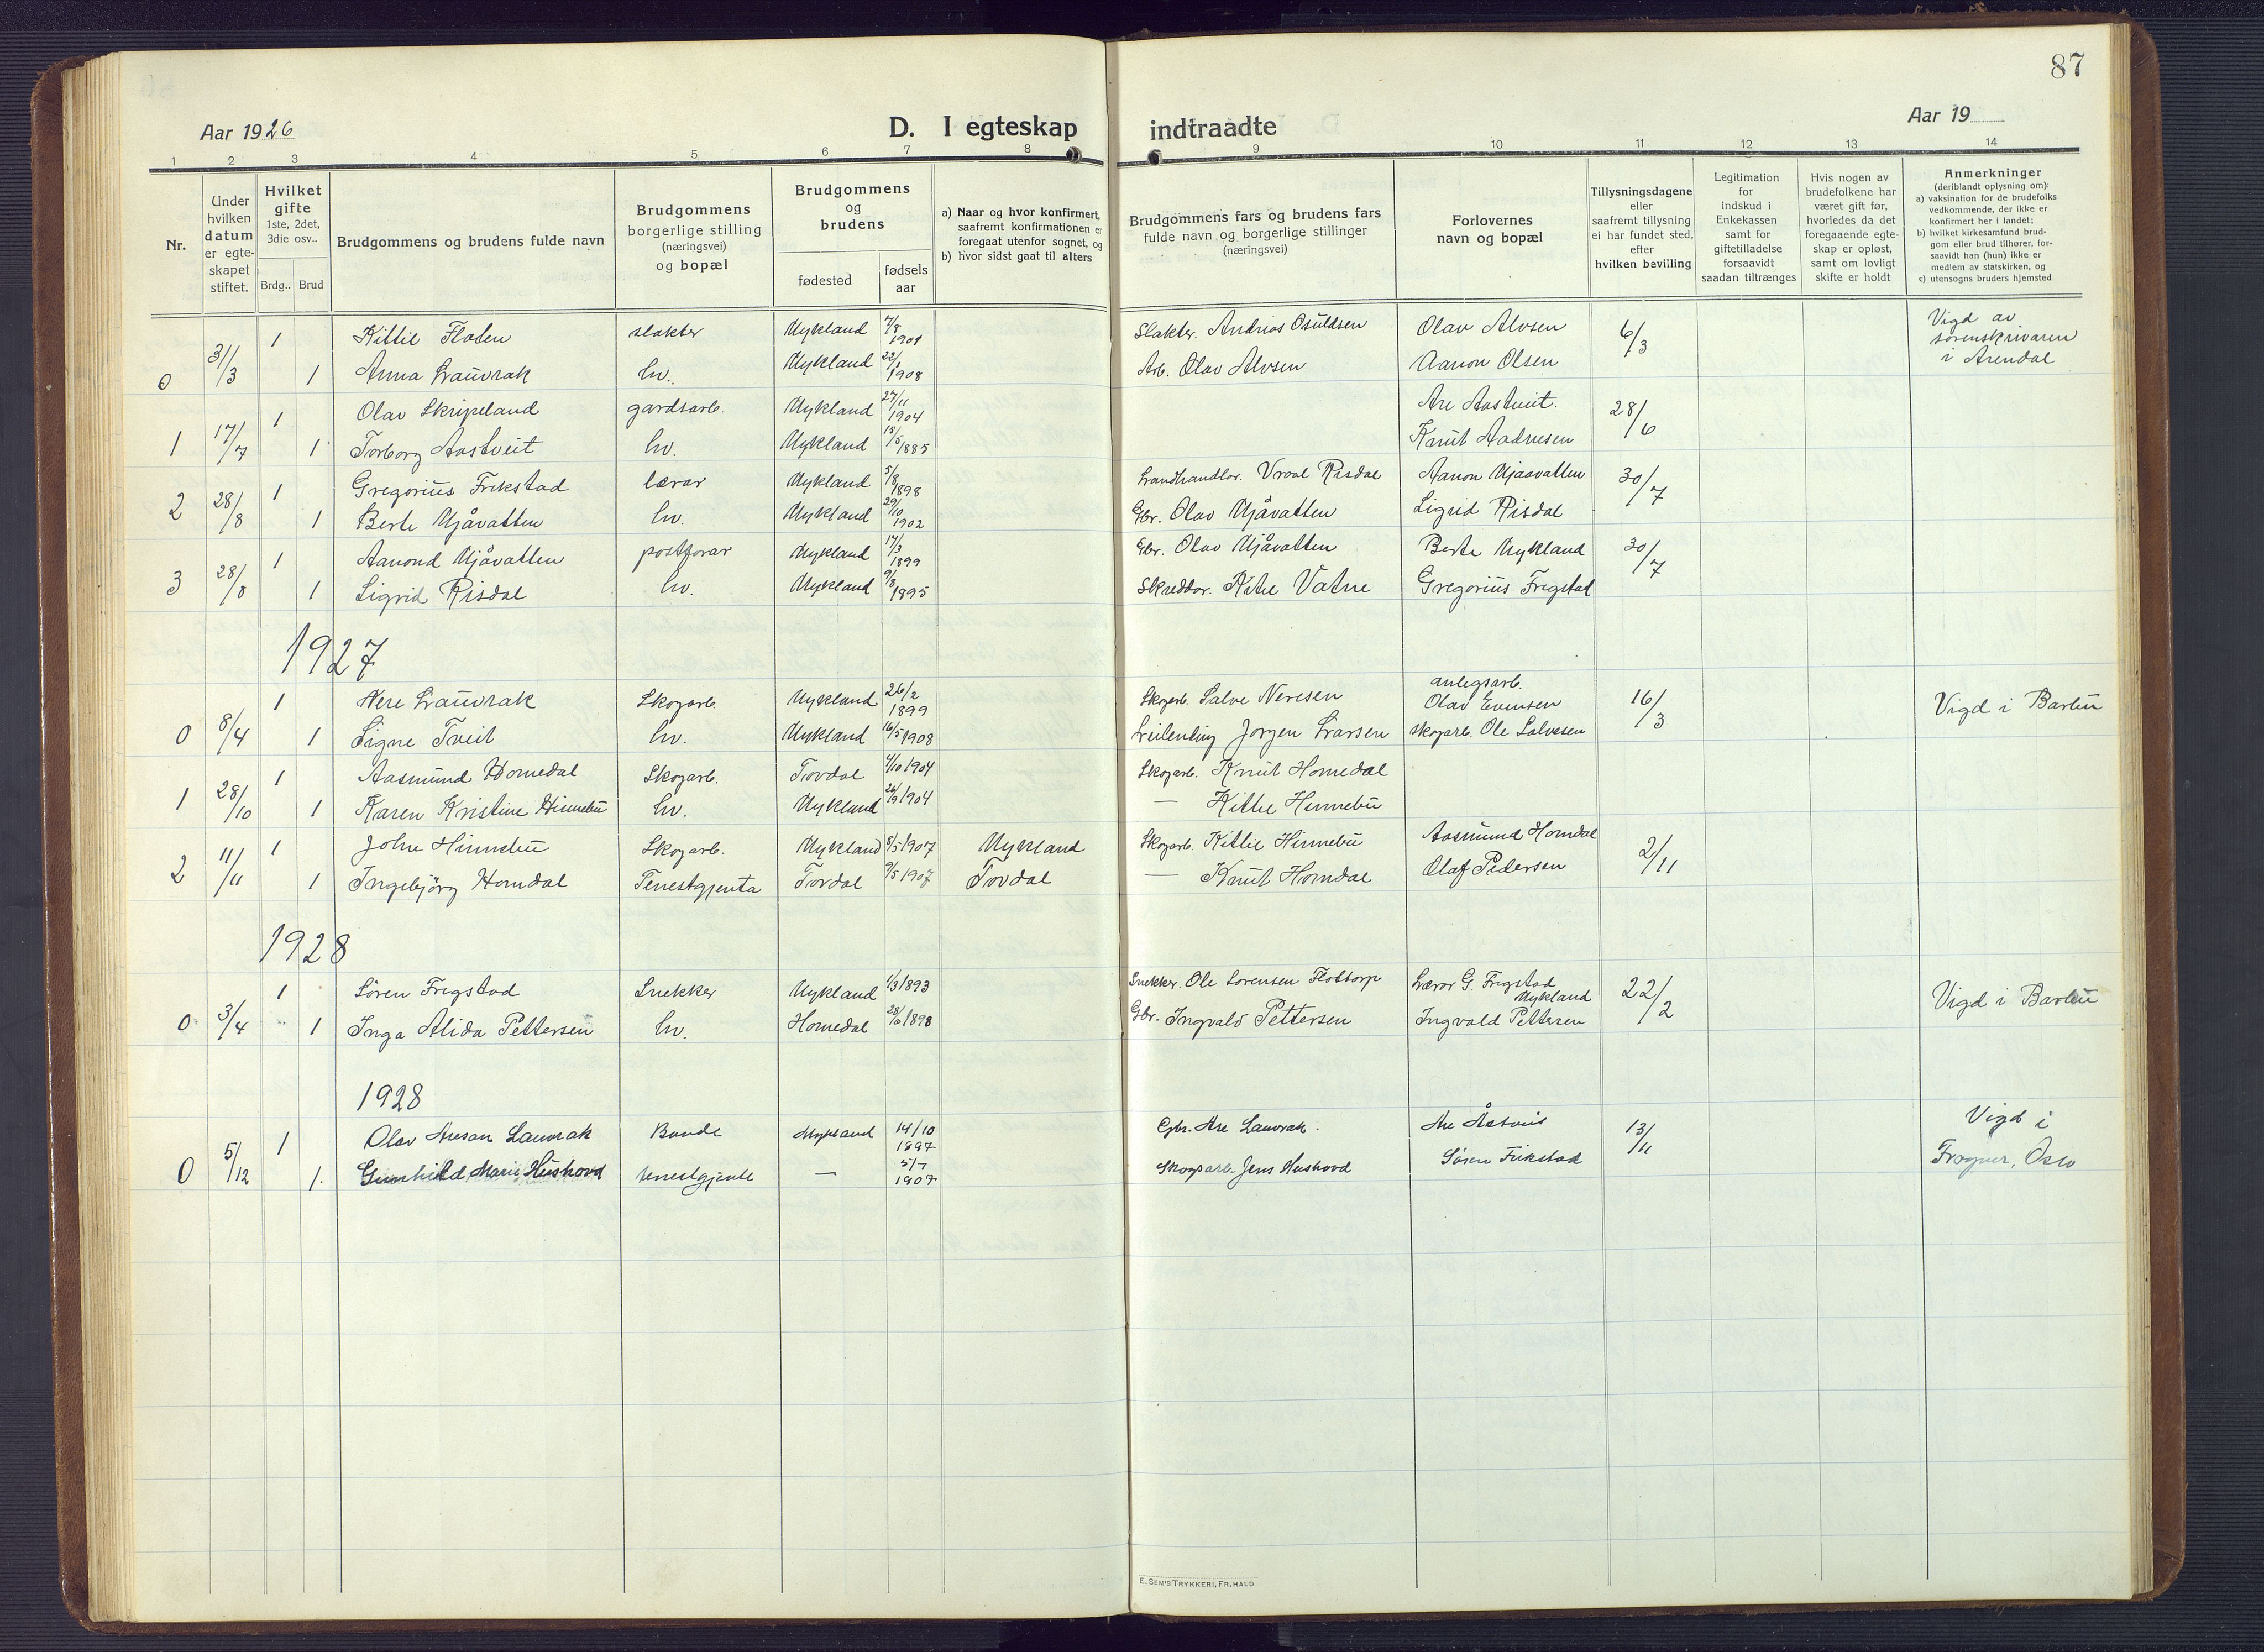 87
Aar 1926
D. I egteskap indtraadte
Aar 19
1 2 3 4 5 6 7 8 9 10 11 12 13 14
Nr.
Under hvilken datum er egteskapet stiftet.
Hvilket gifte 1ste, 2det, 3die osv..
Brdg.. Brud
Brudgommens og brudens fulde navn
Brudgommens borgerlige stilling (næringsvei) og bopæl
Brudgommens og brudens
fødested
fødsels aar
a) Naar og hvor konfirmert, saafremt konfirmationen er foregaat utenfor sognet, og
b) hvor sidst gaat til alters
Brudgommens fars og brudens fars fulde navn og borgerlige stillinger (næringsvei)
Forlovernes navn og bopæl
Tillysningsdagene eller saafremt tillysning ei har fundet sted, efter hvilken bevilling
Legitimation for indskud i Enkekassen samt for giftetilladelse forsaavidt saadan tiltrænges
Hvis nogen av brudefolkene har været gift før, hvorledes da det foregaaende egteskap er opløst, samt om lovligt skifte er holdt
Anmerkninger
(deriblandt oplysning om):
a) vaksination for de brudefolks vedkommende, der ikke er konfirmert her i landet;
b) hvilket kirkesamfund brudgom eller brud tilhører, forsaavidt han (hun) ikke er medlem av statskirken, og
c) utensogns bruders hjemsted
31/3 1 Kittil Flaten slakter Mykland 7/8 1901 Slakter. Andrias Osuldsen Olav Alvsen 6/3 Vigd av sorenskrivaren i Arendal
0 1 Anna Lauvrak hv. Mykland 22/2 1908 Arb. Olav Alvsen Aanon Olsen
17/7 1 Olav Skripeland gardsarb. Mykland 27/11 1904 Are Aastveit. 28/6
1 1 Torborg Aastveit hv. Mykland 15/5 1885 Knut Aadnesen
28/8 1 Gregorius Frikstad lærar Mykland 5/8 1898 Landhandlar. Vraal Risdal Aanon Mjaavatten 30/7
2 1 Berte Mjåvatten hv. Mykland 29/10 1902 Gbr. Olav Mjåvatten Sigrid Risdal
28/8 1 Aanond Mjåvatten postforar Mykland 17/3 1899 Gbr. Olav Mjåvatten Berte Mykland 30/7
3 1 Sigrid Risdal hv. Mykland 9/8 1895 Skreddar. Kitil Vatne Gregorius Frigstad
1927
8/4 1 Nere Lauvrak Skogarb. Mykland 26/2 1899 Skogarb. Salve Neresen anlegsarb. Olav Evensen 16/3 Vigd i Barbu
0 1 Signe Tveit hv. Mykland 16/5 1908 Leilending Jorgen Larsen skogarb. Ole Salvesen
28/10 1 Aasmund Homedal Skogarb. Tovdal 4/10 1904 Skogarb. Knut Homedal
1 1 Karen Kristine Hinnebu hv. Mykland 26/9 1904 — Kittil Hinnebu
11/11 1 John Hinnebu Skogarb. Mykland 8/5 1907 Mykland Skogarb. Kittil Hinnebu Aasmund Homdal 2/11
2 1 Ingebjörg Homdal Tenestgjenta Tovdal 9/5 1907 Tovdal — Knut Homdal Olaf Pedersen
1928
3/4 1 Sören Frigstad Snekker Mykland 1/3 1893 Snekker. Ole Sorensen Flottorp Lærar G. Frigstad Mykland 22/2 Vigd i Barbu
0 1 Inga Alida Pettersen hv. Homedal 1898 Gbr. Ingvald Pettersen Ingvald Pettersen
1928
5/12 1 Olav Aresan Lauvrak Bonde Mykland 14/10 1897 Gbr. Are Lauvrak. Are Åstveit 13/11 Vigd i Frogner, Oslo
0 1. Gunhild Marie Hushovd tenestgjente — 5/7 1907 Skogsarb. Jens Hushovd Søren Frikstad
E. SEM'S TRYKKERI, FR.HALD